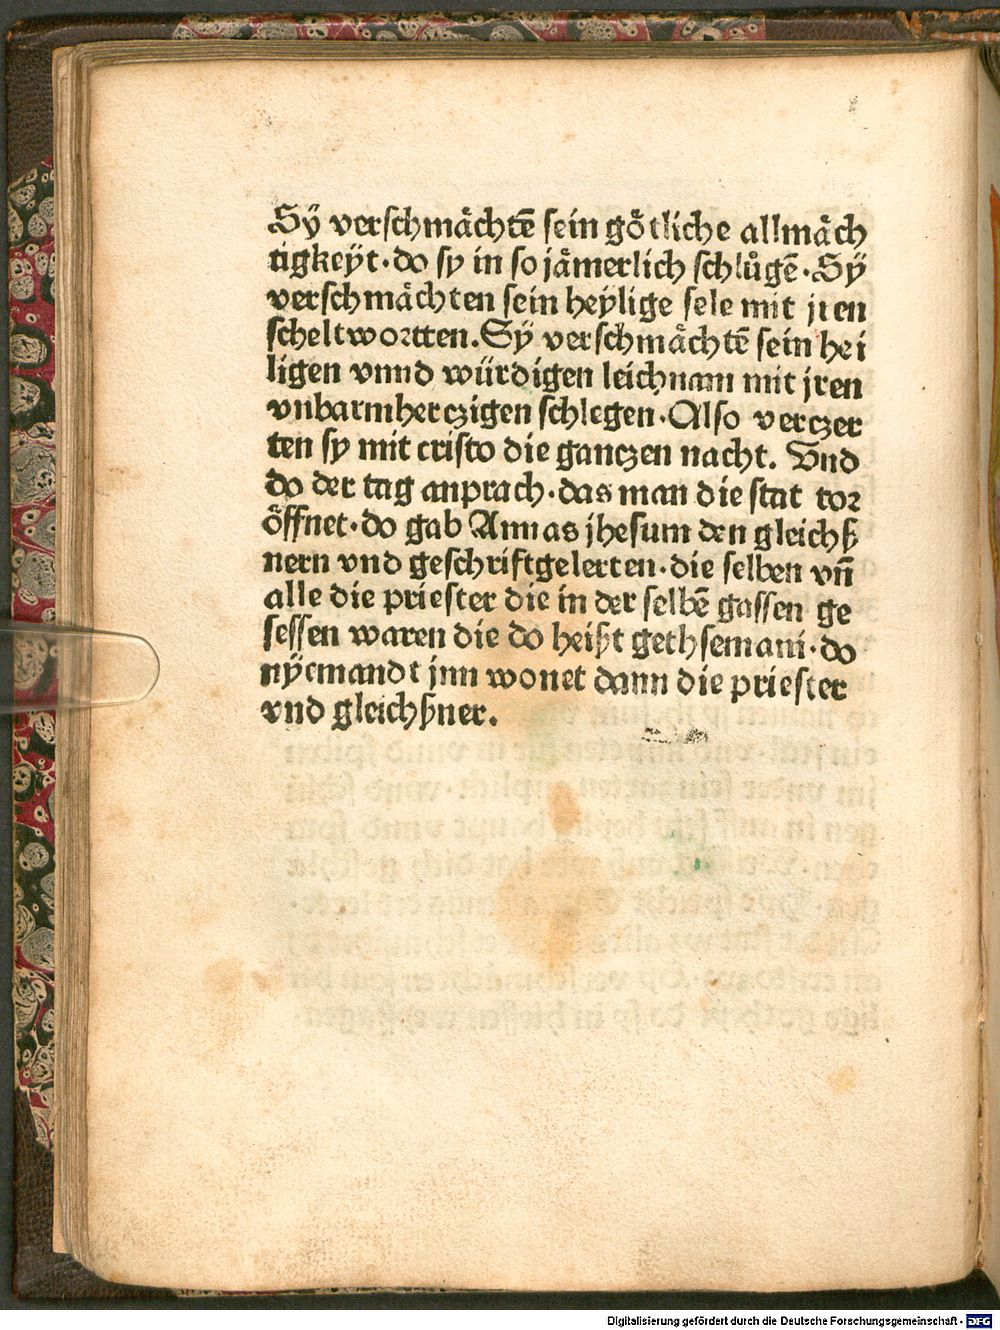 Sÿ verschmächtē sein götliche allmäch
tigkeÿt·do sy in so jämerlich schlůgē·Sÿ
verschmächten sein heÿlige sele mit jren
scheltwortten.Sÿ verschmächtē sein hei
ligen vnnd würdigen leichnam mit jren
vnbarmherczigen schlegen·Also verczer
ten sy mit cristo die ganczen nacht. Vnd
do der tag anprach·das man die stat tor
öffnet·do gab Annas jhesum den gleichß
nern vnd geschriftgelerten·die selben vñ
alle die priester die in der selbē gassen ge
sessen waren die do heißt gethsemani·do
nÿemandt jnn wonet dann die priester
vnd gleichßner.
Digitalisierung gefördert durch die Deutsche Forschungsgemeinschaft - DFG